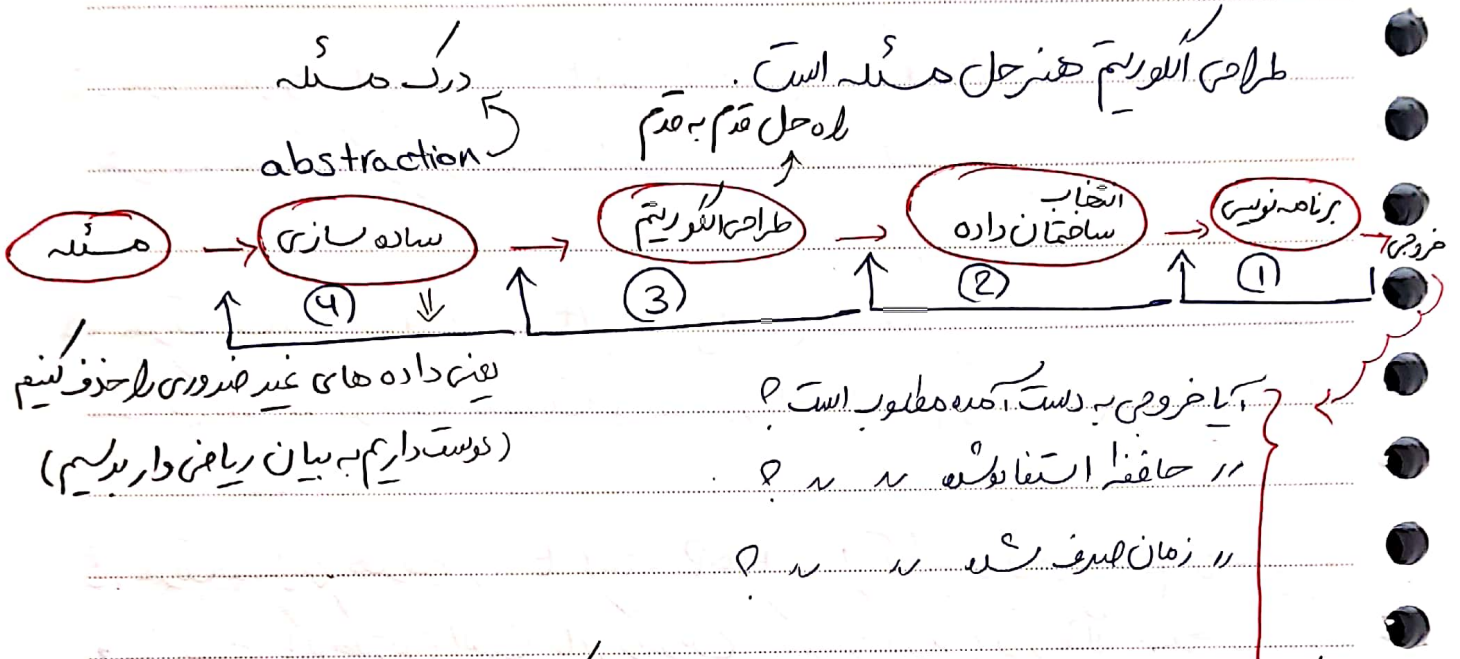 طراحی الگوریتم هنر حل مسئله است.
درک مسئله
راه حل قدم به قدم
abstraction
مسئله
ساده سازی
طراحی الگوریتم
انتخاب
ساختمان داده
برنامه نویسی
خروجی
4
3
2
1
یعنی داده های غیر ضروری را حذف کنیم
(دوست داریم به بیان ریاضی وار برسیم)
آیا خروجی به دست آمده مطلوب است؟
〃 حافظه استفاده شده 〃 〃 ؟
〃 زمان صرف شده 〃 〃 ؟